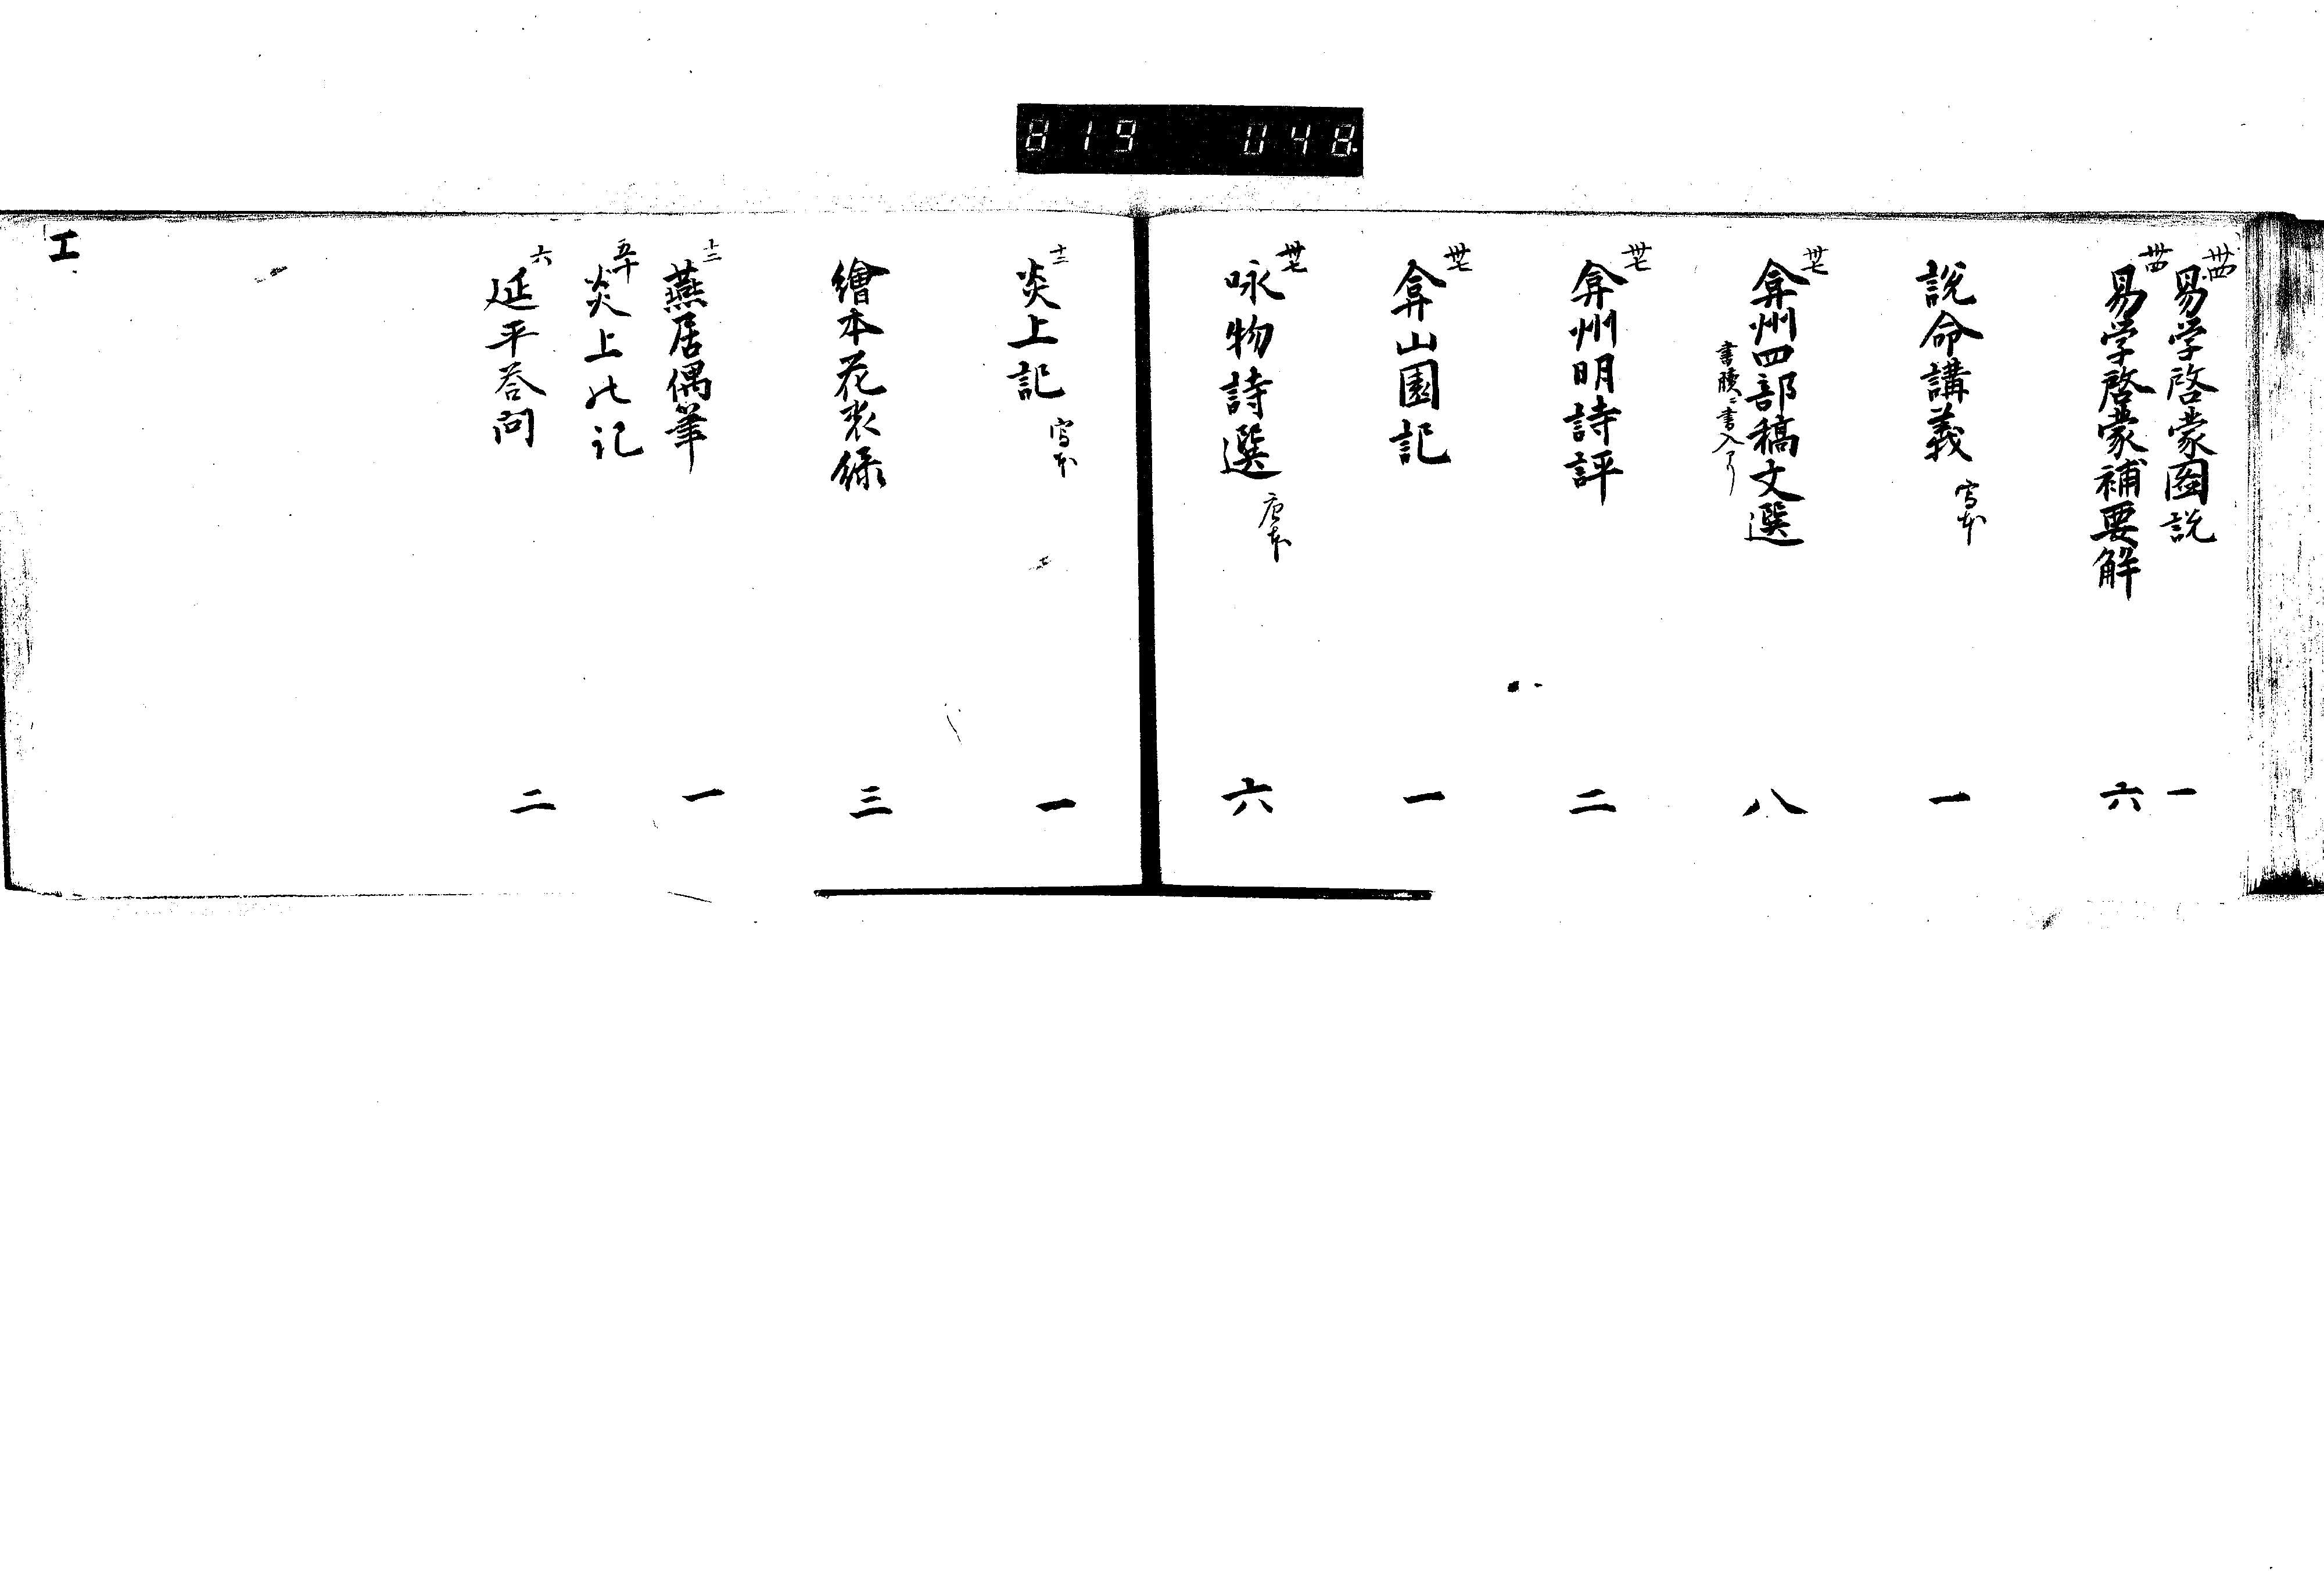 819 048
卌四 易学啓蒙圖説 一
卌四 易学啓蒙補要解 六
説命講義 写本 一
卌七 弇州四部稿文選 八
書牘ニ書入アリ
卌七 弇州明詩評 二
卌七 弇山園記 一
咏物詩選 唐本 六
卌七
十三 炎上記 写本 一
繪本花表緑 三
十三 燕居偶筆 一
五十 炎上の記
六 延平荅問 二
エ